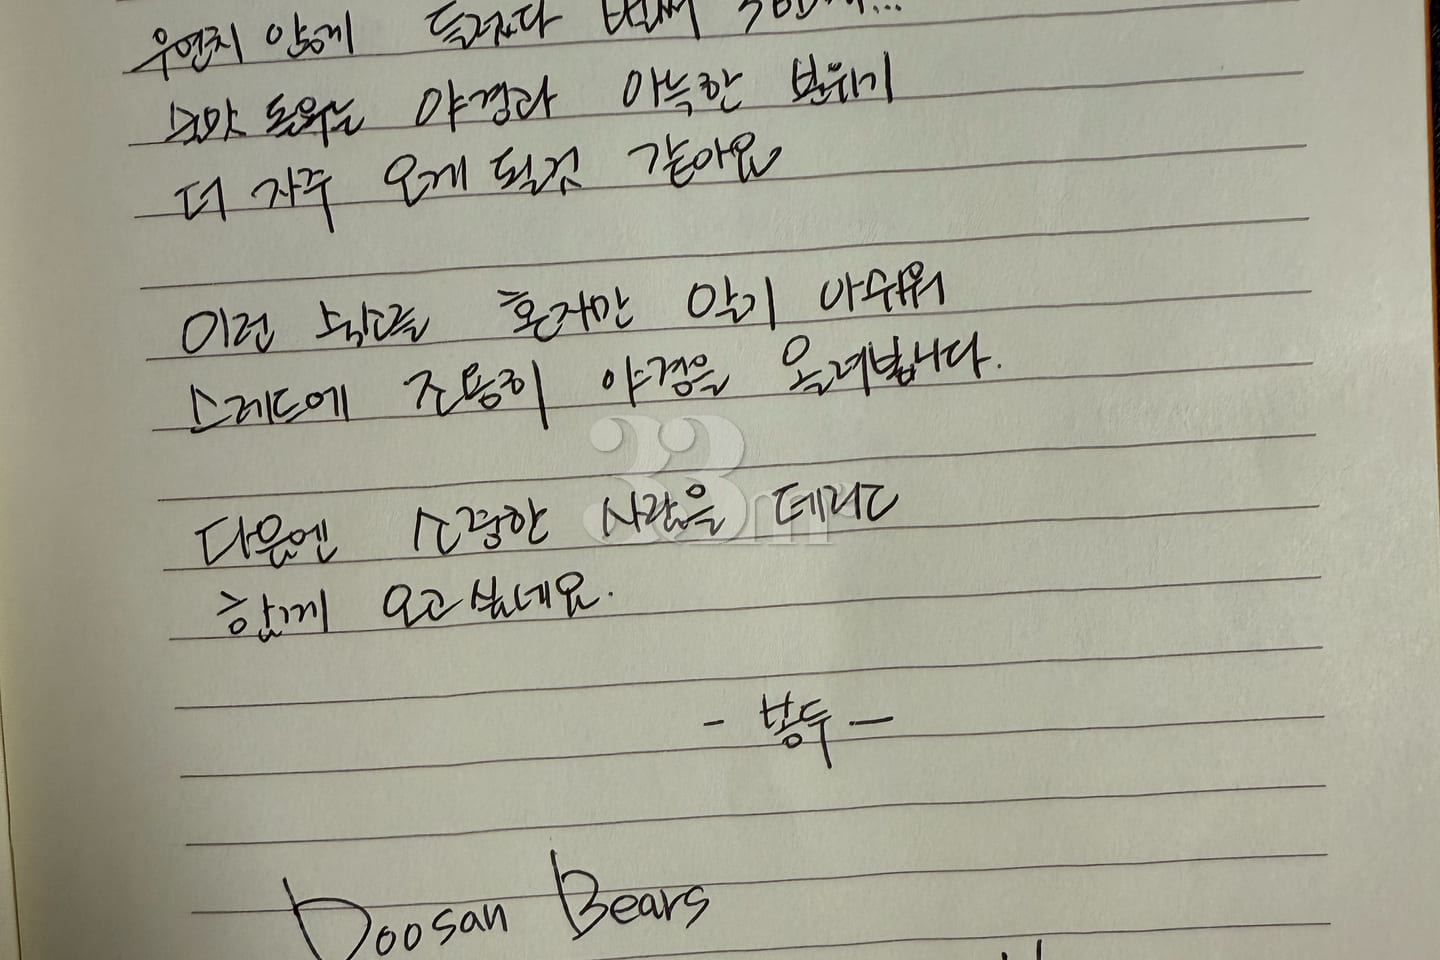 우연히 알게 들렀다 벌써
술맛 돋우는 야경과 아늑한 분위기
더 자주 오게 될것 같아요
이런 숙소를 혼자만 알기 아쉬워
스레드에 조용히 야경을 올려봅니다.
다음엔 소중한 사람을 데리고
함께 오고싶네요.
- 봉두 -
33m²
Doosan Bears